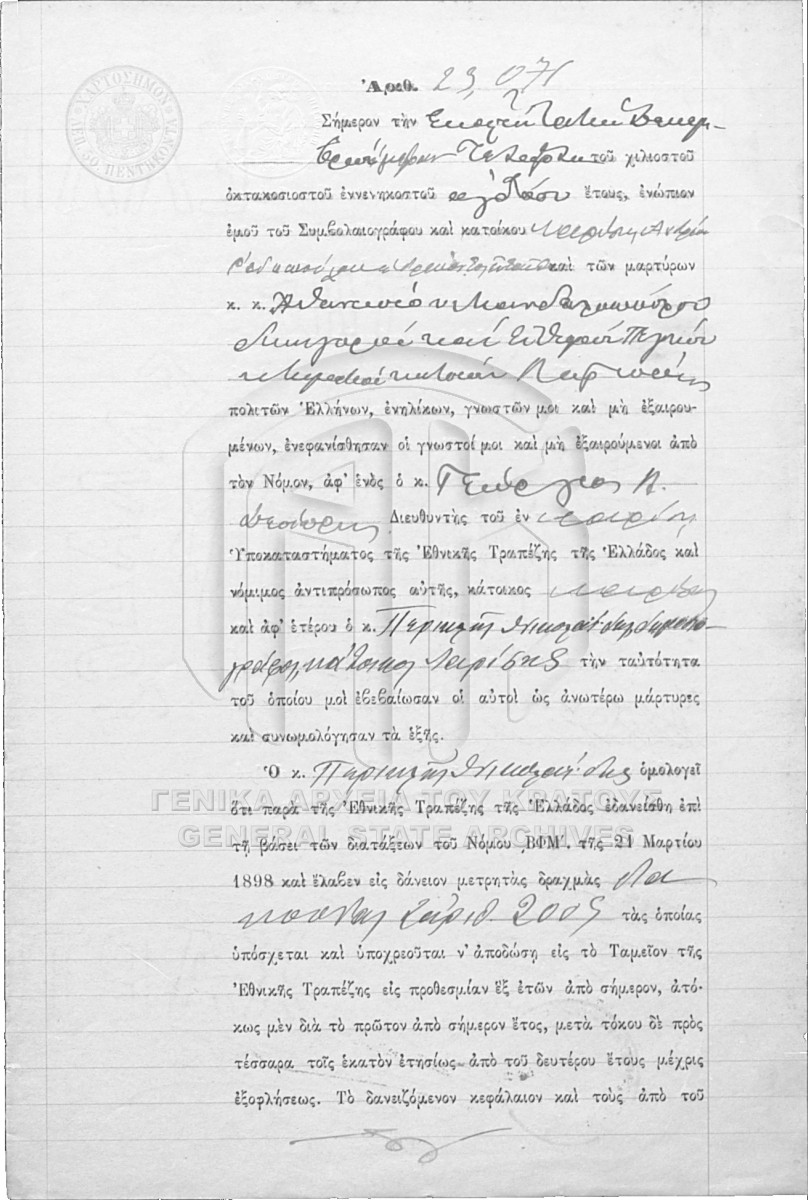 ΧΑΡΤΟΣΗΜΟΝ
ΛΕΠ 50 ΠΕΝΤΗΚΟΝΤΑ
Ἀριθ. 23,071
Σήμερον τὴν
Τετάρτην τοῦ χιλιοστοῦ
ὀκτακοσιοστοῦ ἐννενηκοστοῦ ὀγδόου ἔτους, ἐνώπιον
ἐμοῦ τοῦ Συμβολαιογράφου καὶ κατοίκου Λαρίσης
καὶ τῶν μαρτύρων
κ. κ. Ἀθανασίου
δικηγόρου καὶ
κατοίκων Λαρίσσης
πολιτῶν Ἑλλήνων, ἐνηλίκων, γνωστῶν μοι καὶ μὴ ἐξαιρου-
μένων, ἐνεφανίσθησαν οἱ γνωστοί μοι καὶ μὴ ἐξαιρούμενοι ἀπὸ
τὸν Νόμον, ἀφ' ἑνὸς ὁ κ. Γεώργιος Α.
Διευθυντὴς τοῦ ἐν Λαρίσῃ
Ὑποκαταστήματος τῆς Ἐθνικῆς Τραπέζης τῆς Ἑλλάδος καὶ
νόμιμος ἀντιπρόσωπος αὐτῆς, κάτοικος Λαρίσης
καὶ ἀφ' ἑτέρου ὁ κ. Περικλῆς Νικολαΐδης δημοσιο-
γράφος, κάτοικος Λαρίσης τὴν ταὐτότητα
τοῦ ὁποίου μοὶ ἐβεβαίωσαν οἱ αὐτοὶ ὡς ἀνωτέρω μάρτυρες
καὶ συνωμολόγησαν τὰ ἑξῆς.
Ὁ κ. Περικλῆς Νικολαΐδης ὁμολογεῖ
ΓΕΝΙΚΑ ΑΡΧΕΙΑ ΤΟΥ ΚΡΑΤΟΥΣ
ὅτι παρὰ τῆς Ἐθνικῆς Τραπέζης τῆς Ἑλλάδος ἐδανείσθη ἐπὶ
GENERAL STATE ARCHIVES
τῇ βάσει τῶν διατάξεων τοῦ Νόμου ͵ΒΦΜ΄. τῆς 21 Μαρτίου
1898 καὶ ἔλαβεν εἰς δάνειον μετρητὰς δραχμὰς δια
κοσίας ἀριθ. 200 τὰς ὁποίας
ὑπόσχεται καὶ ὑποχρεοῦται ν' ἀποδώσῃ εἰς τὸ Ταμεῖον τῆς
Ἐθνικῆς Τραπέζης εἰς προθεσμίαν ἓξ ἐτῶν ἀπὸ σήμερον, ἀτό-
κως μὲν διὰ τὸ πρῶτον ἀπὸ σήμερον ἔτος, μετὰ τόκου δὲ πρὸς
τέσσαρα τοῖς ἑκατὸν ἐτησίως ἀπὸ τοῦ δευτέρου ἔτους μέχρις
ἐξοφλήσεως. Τὸ δανειζόμενον κεφάλαιον καὶ τοὺς ἀπὸ τοῦ